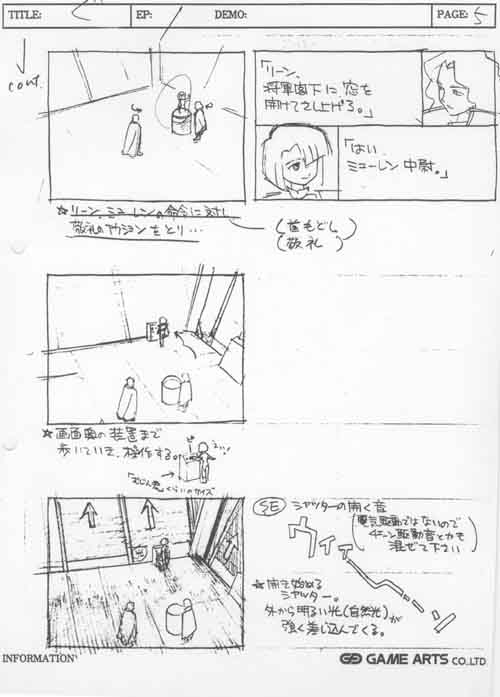 TITLE:
EP:
DEMO:
PAGE: 5
cont.
「リーン、
将軍閣下に窓を
開けてさし上げろ。」
「はい
ミューレン中尉。」
☆リーン、ミューレンの命令に対し
敬礼のアクションをとり…
(首もどし)
(敬礼)
☆画面奥の装置まで
歩いていき、操作する。
くらいのサイズ
SE シャッターの開く音
(電気駆動ではないので
チェーン駆動音とかも
混ぜて下さい)
ウィィ
☆開き始める
シャッター。
外から明るい光(自然光)が
強く差し込んでくる。
INFORMATION
GAME ARTS CO.,LTD.